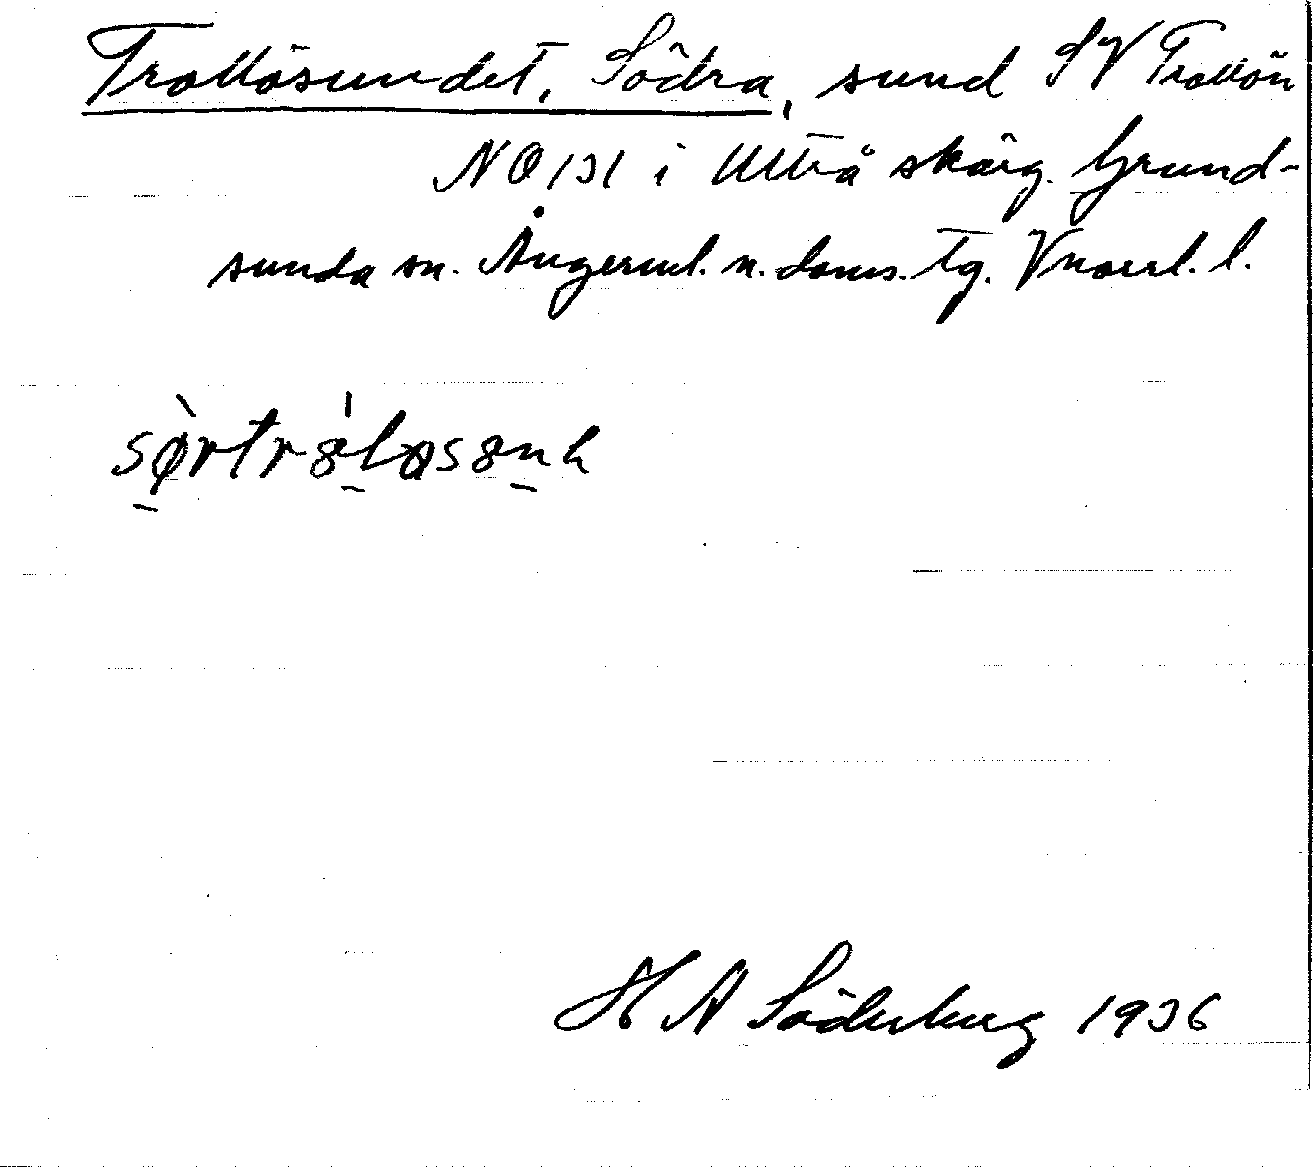 Trollösundet, Södra, sund SV Trollön
NO 131 i Ulvå skärg. Grund-
sunda sn. Ångerml. n. doms. tg. Vnorrl. l.
H A Söderberg 1936